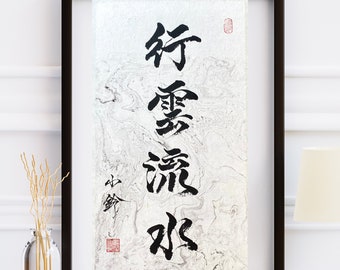 行雲流水
小鈴